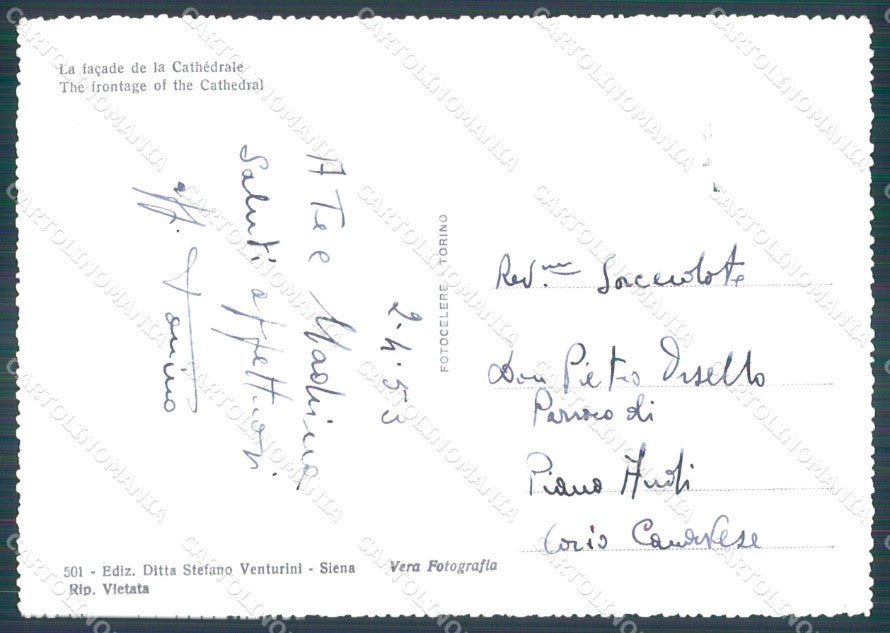 La façade de la Cathédrale
The frontage of the Cathedral
A Te e Madrina
saluti affettuosi
Tonino
2-4-53
FOTOCELERE - TORINO
Rev.mo Sacerdote
Don Pietro Uselto
Parroco di
Piano Audi
Corio Canavese
501 - Ediz. Ditta Stefano Venturini - Siena
Vera Fotografia
Rip. Vietata
CARTOLINOMANIA